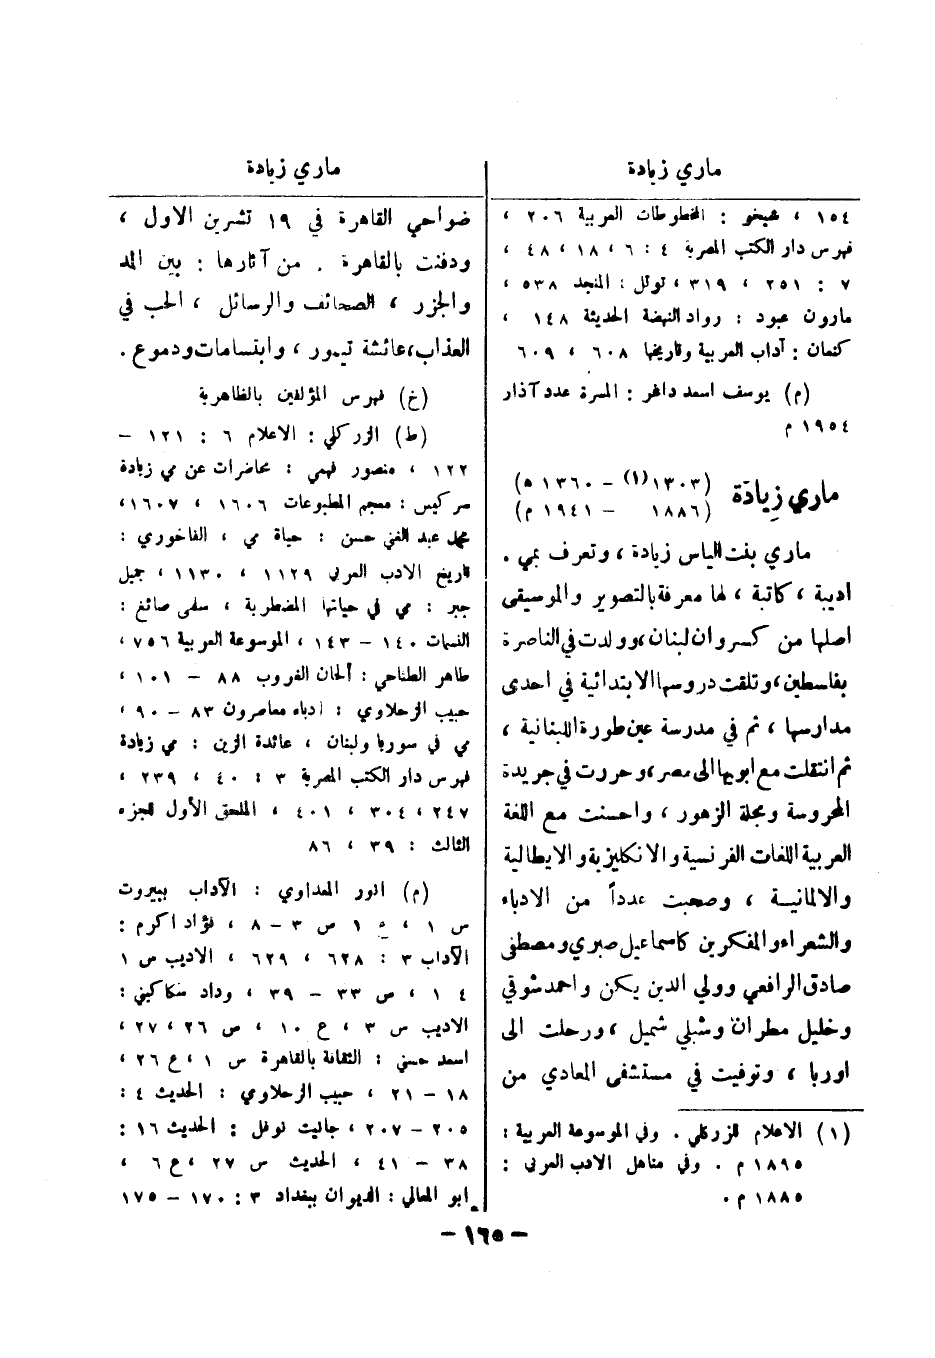 ماري زيادة
١٥٤ ، شيخو : المخطوطات العربية ٢٠٦ ،
فهرس دار الكتب المصرية ٤ : ٦ ، ١٨ ، ٤٨ ،
٧ : ٢٥١ ، ٣١٩ ، توتل : المنجد ٥٣٨ ،
مارون عبود : رواد النهضة الحديثة ١٤٨ ،
كنعان : آداب العربية وتاريخها ٦٠٨ ، ٦٠٩
(م) يوسف اسعد داغر : المسرة عدد آذار
١٩٥٤ م
ماري زيادة (١٣٠٣(١) – ١٣٦٠ ه)
(١٨٨٦ – ١٩٤١ م)
ماري بنت الياس زيادة ، وتعرف بمي .
اديبة ، كاتبة ، لها معرفة بالتصوير والموسيقى
اصلها من كسروان لبنان ، وولدت في الناصرة
بفلسطين ، وتلقت دروسها الابتدائية في احدى
مدارسها ، ثم في مدرسة عين طورة اللبنانية ،
ثم انتقلت مع ابويها الى مصر ، وحررت في جريدة
المحروسة ومجلة الزهور ، واحسنت مع اللغة
العربية اللغات الفرنسية والانكليزية والايطالية
والالمانية ، وصحبت عدداً من الادباء
والشعراء والمفكرين كاسماعيل صبري ومصطفى
صادق الرافعي وولي الدين يكن واحمد شوقي
وخليل مطران وشبلي شميل ، ورحلت الى
اوربا ، وتوفيت في مستشفى المعادي من
(١) الاعلام للزركلي . وفي الموسوعة العربية :
١٨٩٥ م . وفي مناهل الادب العربي :
١٨٨٥ م .
ماري زيادة
ضواحي القاهرة في ١٩ تشرين الاول ،
ودفنت بالقاهرة . من آثارها : بين المد
والجزر ، الصحائف والرسائل ، الحب في
العذاب ، عائشة تيمور ، وابتسامات ودموع .
(خ) فهرس المؤلفين بالظاهرية
(ط) الزركلي : الاعلام ٦ : ١٢١ –
١٢٢ ، منصور فهمي : محاضرات عن مي زيادة
سركيس : معجم المطبوعات ١٦٠٦ ، ١٦٠٧ ،
محمد عبد الغني حسن : حياة مي ، الفاخوري :
تاريخ الادب العربي ١١٢٩ ، ١١٣٠ ، جميل
جبر : مي في حياتها المضطربة ، سلمى صائغ :
النسمات ١٤٠ – ١٤٣ ، الموسوعة العربية ٧٥٦ ،
طاهر الطناحي : ألحان الغروب ٨٨ – ١٠١ ،
حبيب الزحلاوي : ادباء معاصرون ٨٣ – ٩٠ ،
مي في سوريا ولبنان ، عائدة الزين : مي زيادة
فهرس دار الكتب المصرية ٣ : ٤٠ ، ٢٣٩ ،
٢٤٧ ، ٣٠٤ ، ٤٠١ ، الملحق الأول للجزء
الثالث : ٣٩ ، ٨٦
(م) انور المعداوي : الآداب ببيروت
س ١ ، ٥ ١ ص ٣ – ٨ ، فؤاد اكرم :
الآداب ٣ : ٦٢٨ ، ٦٢٩ ، الاديب س ١
٤ ١ ، ص ٣٣ – ٣٩ ، وداد سكاكيني :
الاديب س ٣ ، ع ١٠ ، ص ٢٦ ، ٢٧ ،
اسعد حسني : الثقافة بالقاهرة س ١ ، ع ٢٦ ،
١٨ – ٢١ ، حبيب الزحلاوي : الحديث ٤ :
٢٠٥ – ٢٠٧ ، جانيت نوفل : الحديث ١٦ :
٣٨ – ٤١ ، الحديث س ٢٧ ، ع ٦ ،
ابو المعالي : الديوان ببغداد ٣ : ١٧٠ – ١٧٥
– ١٦٥ –